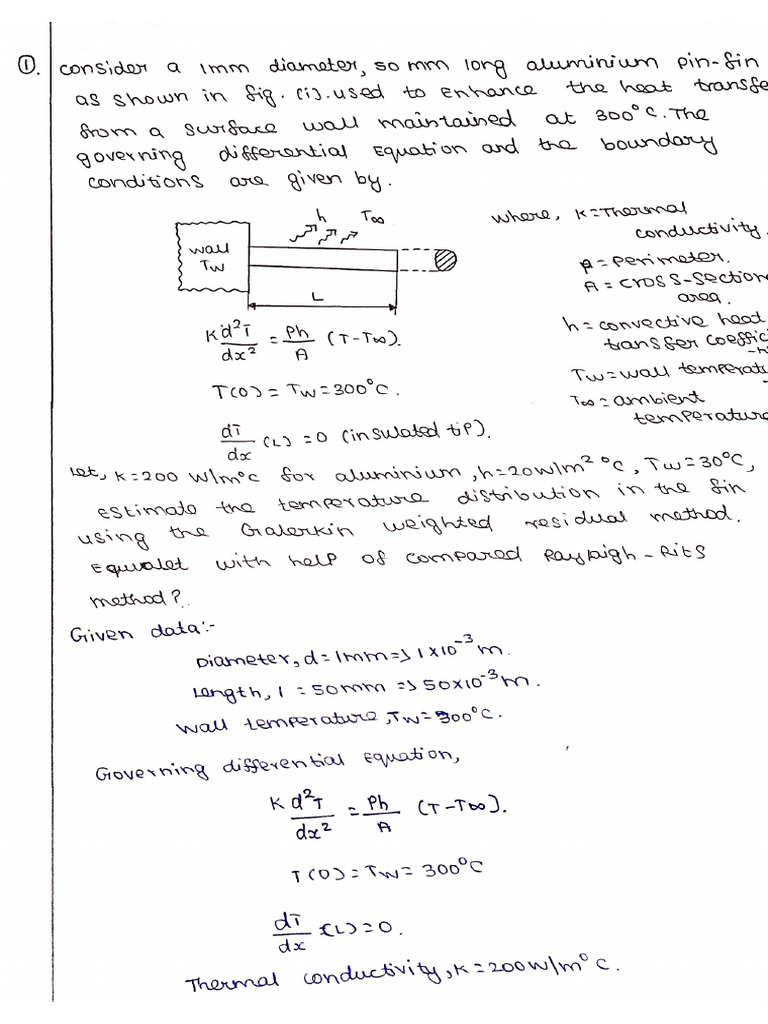 ①. consider a 1mm diameter, 50 mm long aluminium pin-fin
as shown in fig. (i). used to enhance the heat transfe
from a surface wall maintained at 300°C. The
governing differential Equation and the boundary
conditions are given by.
h T∞
wall
Tw
L
where, K=Thermal
conductivity.
P = perimeter.
A = cross-section
area.
h = convective heat
transfer coeffic
Tw = wall temperat
T∞ = ambient
temperature
K d²T/dx² = Ph/A (T-T∞).
T(0) = Tw = 300°C.
dT/dx (L) = 0 (insulated tip).
Let, K=200 W/m°c for aluminium, h=20w/m² °c, Tw=30°C,
estimate the temperature distribution in the fin
using the Galerkin weighted residual method.
Equvalet with help of compared Raypaigh-Rits
method?.
Given data:-
Diameter, d=1mm => 1×10⁻³ m.
Length, l = 50mm => 50×10⁻³ m.
wall temperature, Tw=300°C.
Governing differential Equation,
K d²T/dx² = Ph/A (T-T∞).
T(0) = Tw = 300°C
dT/dx (L) = 0.
Thermal conductivity, K=200w/m°C.